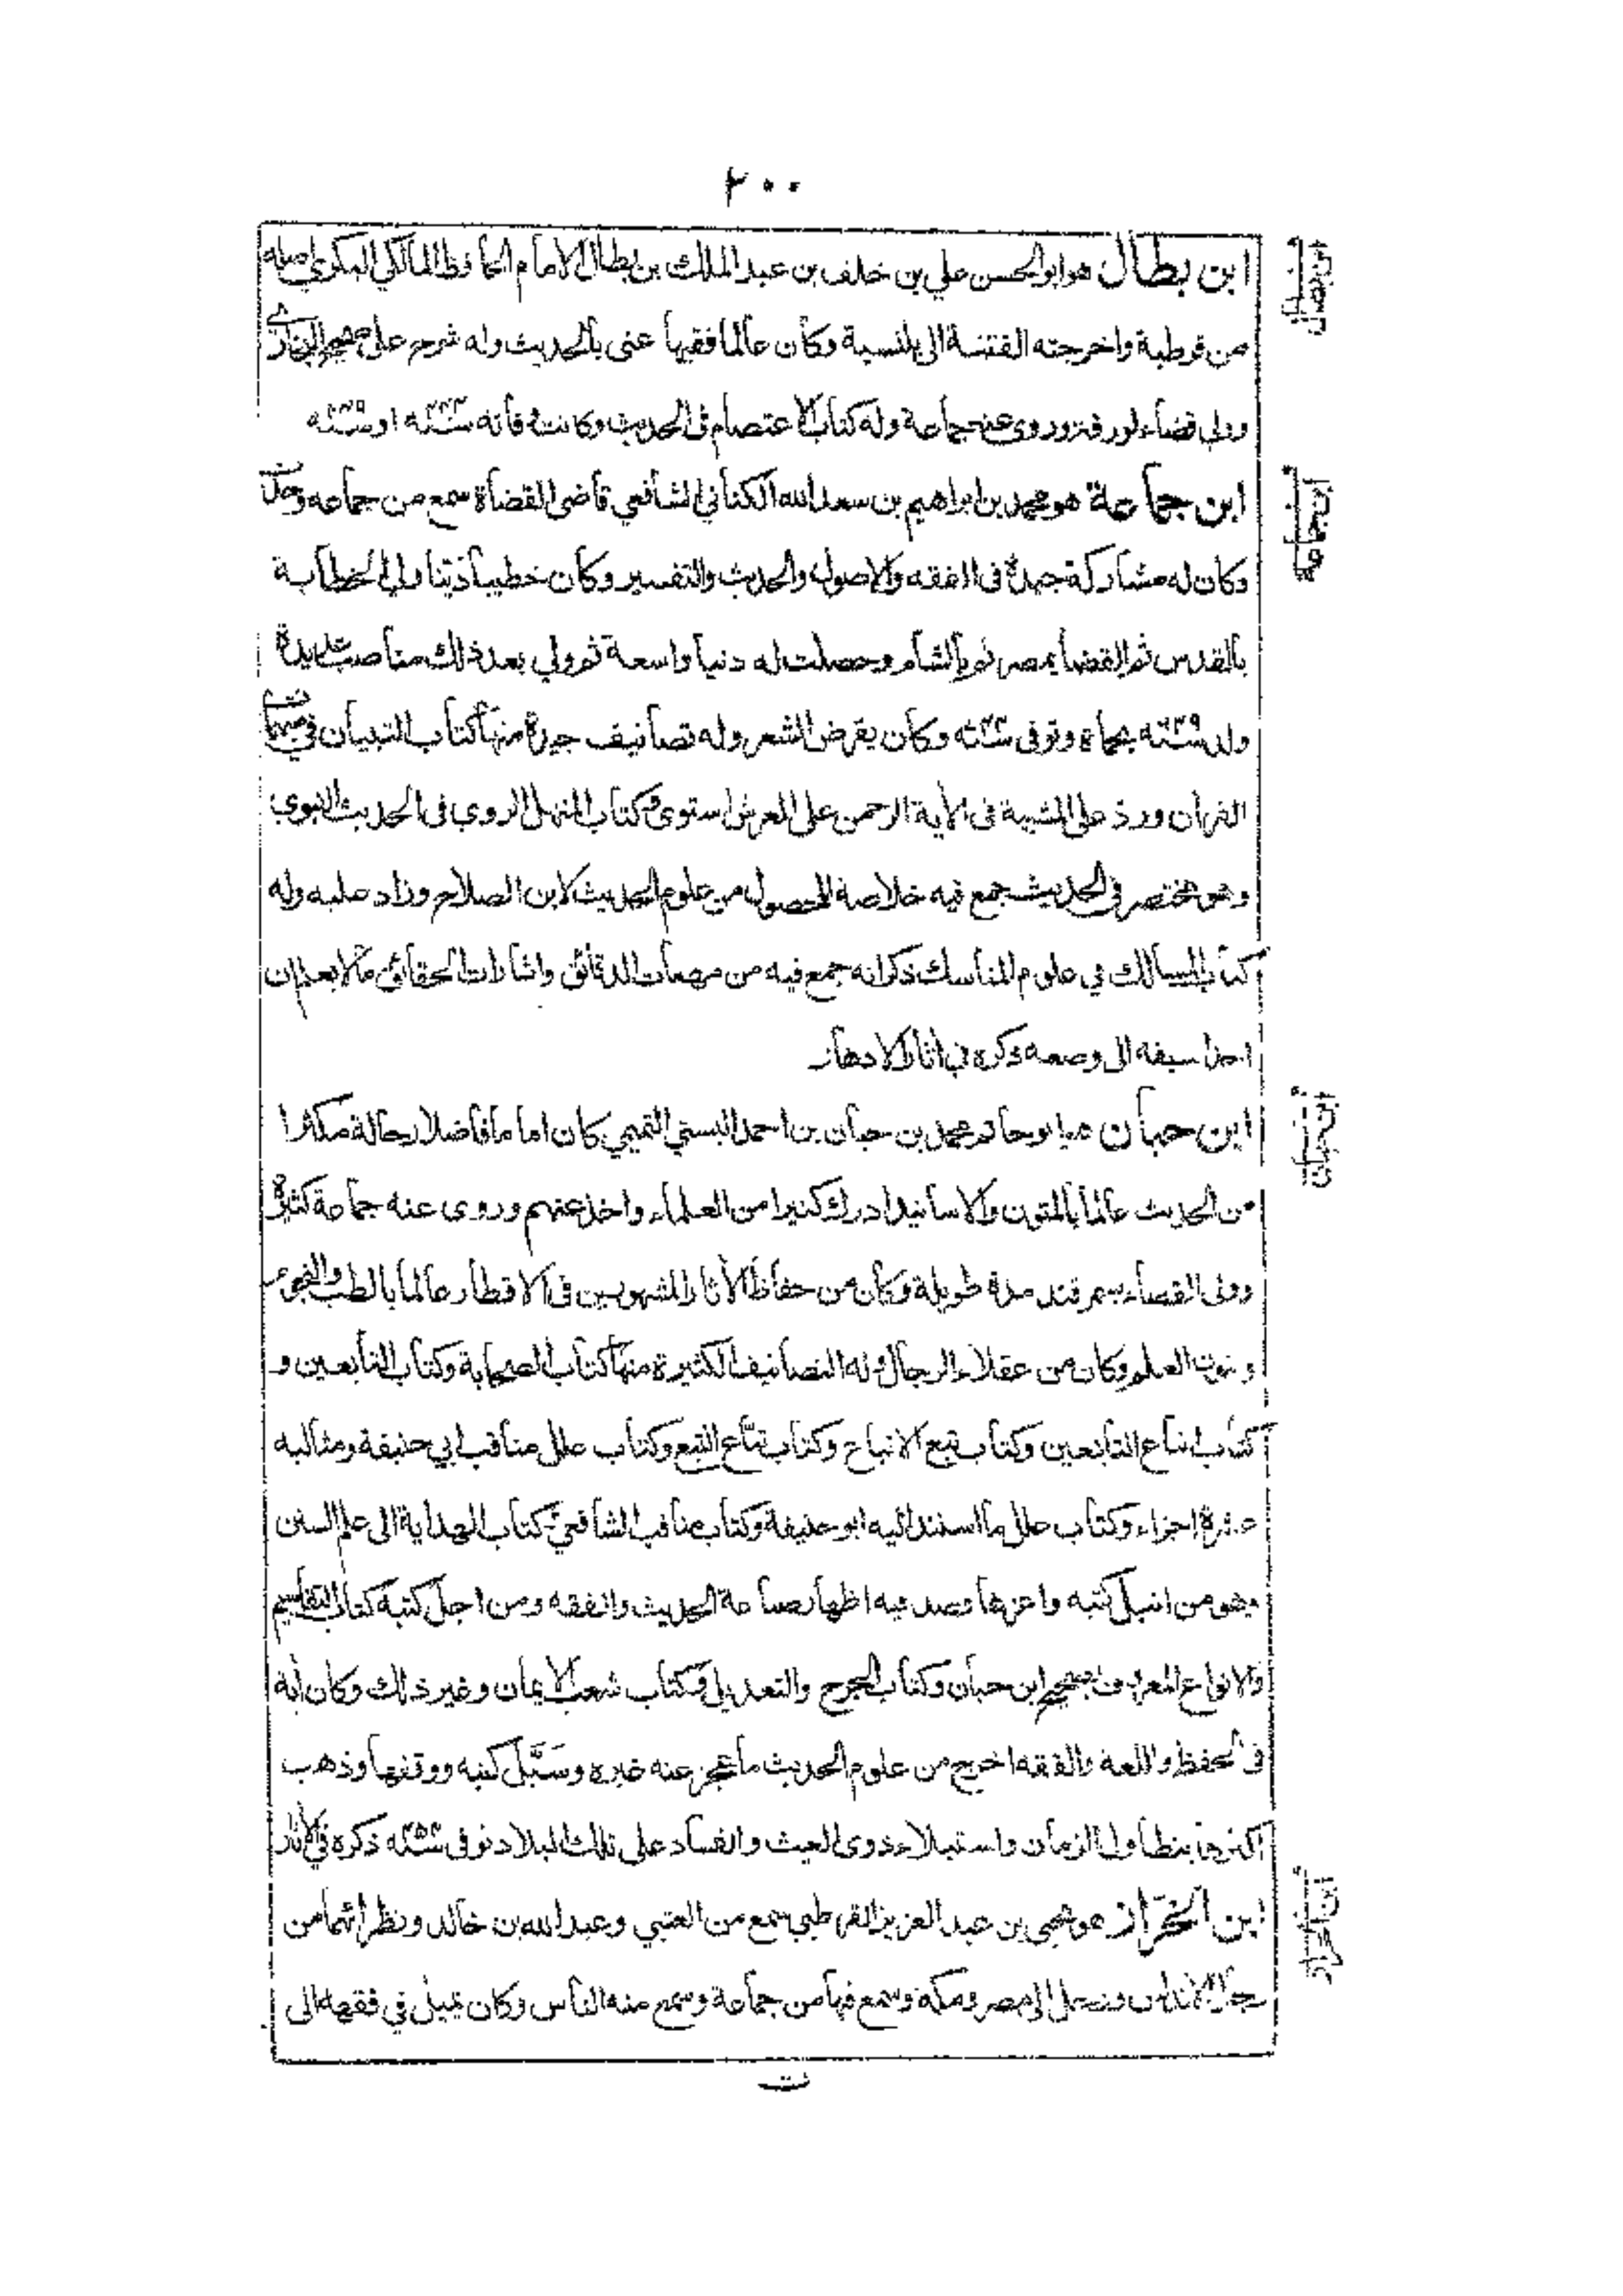 ٢٠٠
ابن بطال هو ابو الحسن علي بن خلف بن عبد الملك بن بطال الامام الحافظ المالكي البكري اصله
من قرطبة واخرجته الفتنة الى بلنسية وكان عالما فقيها عنى بالحديث وله شرح على صحيح البخاري
وولي قضاء لورقة وروى عنه جماعة وله كتاب الاعتصام فى الحديث وكانت وفاته سنة او سنة
ابن جماعة هو محمد بن ابراهيم بن سعد الله الكناني الشافعي قاضى القضاة سمع من جماعه وحدث
وكان له مشاركة جيدة فى الفقه والاصول والحديث والتفسير وكان خطيبا دينا ولي الخطابة
بالقدس ثم القضا بمصر ثم بالشام وحصلت له دنيا واسعة ثم ولي بعد ذلك مناصب عديدة
ولد سنة بحماة وتوفى سنة وكان يقرض الشعر وله تصانيف جيدة منها كتاب التبيان في مبهمات
القران ورد على المشبهة فى الاية الرحمن على العرش استوى وكتاب المنهل الروي فى الحديث النبوي
وهو مختصر في الحديث جمع فيه خلاصة المحصول من علوم الحديث لابن الصلاح وزاد عليه وله
كتاب المسالك في علوم المناسك ذكر انه جمع فيه من مهمات الدقائق واشارات الحقائق مالا يعلم ان
احدا سبقه الى وضعه ذكره في اثار الادهار
ابن حبان هو ابو حاتم محمد بن حبان بن احمد البستي التميمي كان اماما فاضلا رحالة مكثرا
من الحديث عالما بالمتون والاسانيد ادرك كثيرا من العلماء واخذ عنهم وروى عنه جماعة كثيرة
وولى القضاء بسمرقند مدة طويلة وكان من حفاظ الاثار المشهورين فى الاقطار عالما بالطب والنجوم
وفنون العلم وكان من عقلاء الرجال وله التصانيف الكثيرة منها كتاب الصحابة وكتاب التابعين و
كتاب اتباع التابعين وكتاب تبع الاتباع وكتاب تبّاع التبع وكتاب علل مناقب ابي حنيفة ومثالبه
عشرة اجزاء وكتاب علل ما استند اليه ابو حنيفة وكتاب مناقب الشافعي وكتاب الهداية الى علم السنن
وهو من انبل كتبه واعزها قصد فيه اظهار صناعة الحديث والفقه ومن اجل كتبه كتاب التقاسيم
والانواع المعروف بصحيح ابن حبان وكتاب الجرح والتعديل وكتاب شعب الايمان وغير ذلك وكان اية
فى الحفظ واللغة والفقه اخرج من علوم الحديث ما عجز عنه غيره وسَبَّل كتبه ووقفها وذهب
اكثرها بتطاول الزمان واستيلاء ذوى العيث والفساد على تلك البلاد توفى سنة ذكره في الاثار
ابن الخرّاز هو يحيى بن عبد العزيز القرطبي سمع من العتبي وعبد الله بن خالد ونظرائهما من
رجال الاندلس ورحل الى مصر ومكة وسمع فيها من جماعة وسمع منه الناس وكان يميل في فقهه الى
ابن بطال
ابن جماعة
ابن حبان